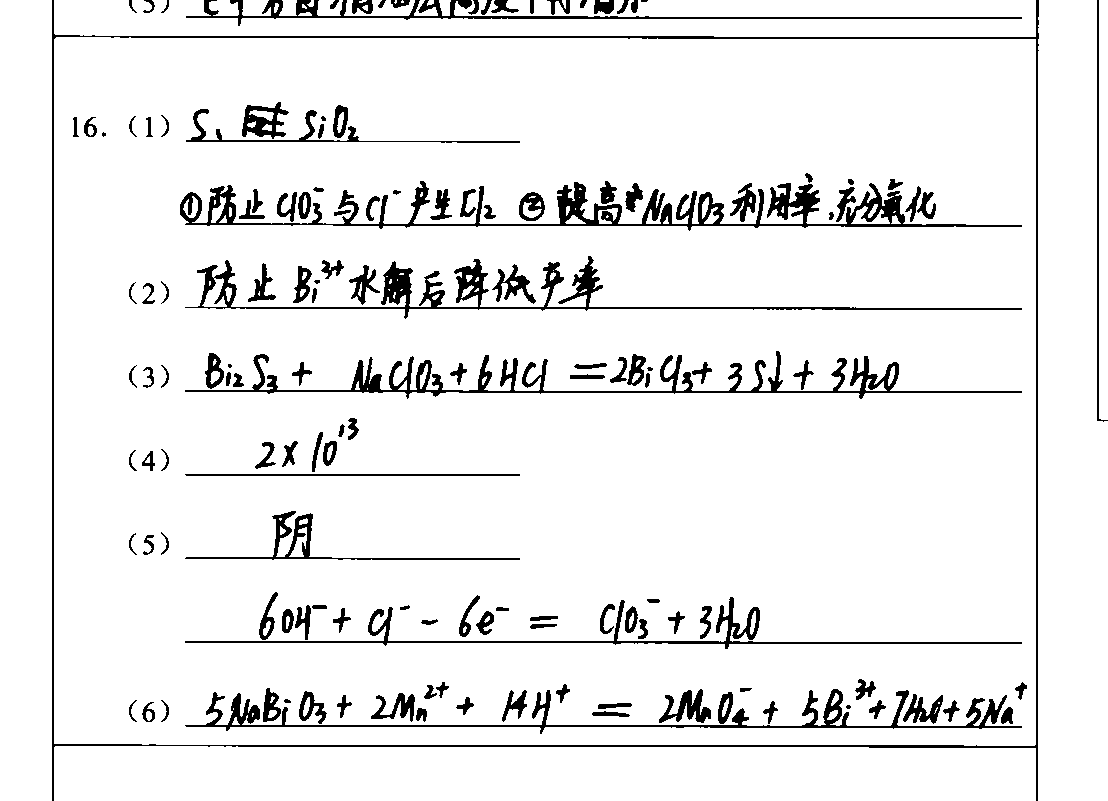 16. (1) S、SiO₂
①防止ClO₃⁻与Cl⁻产生Cl₂ ②提高NaClO₃利用率,充分氧化
(2) 防止Bi³⁺水解后降低产率
(3) Bi₂S₃ + NaClO₃ + 6HCl = 2BiCl₃ + 3S↓ + 3H₂O
(4) 2×10¹³
(5) 阴
6OH⁻ + Cl⁻ - 6e⁻ = ClO₃⁻ + 3H₂O
(6) 5NaBiO₃ + 2Mn²⁺ + 14H⁺ = 2MnO₄⁻ + 5Bi³⁺ + 7H₂O + 5Na⁺